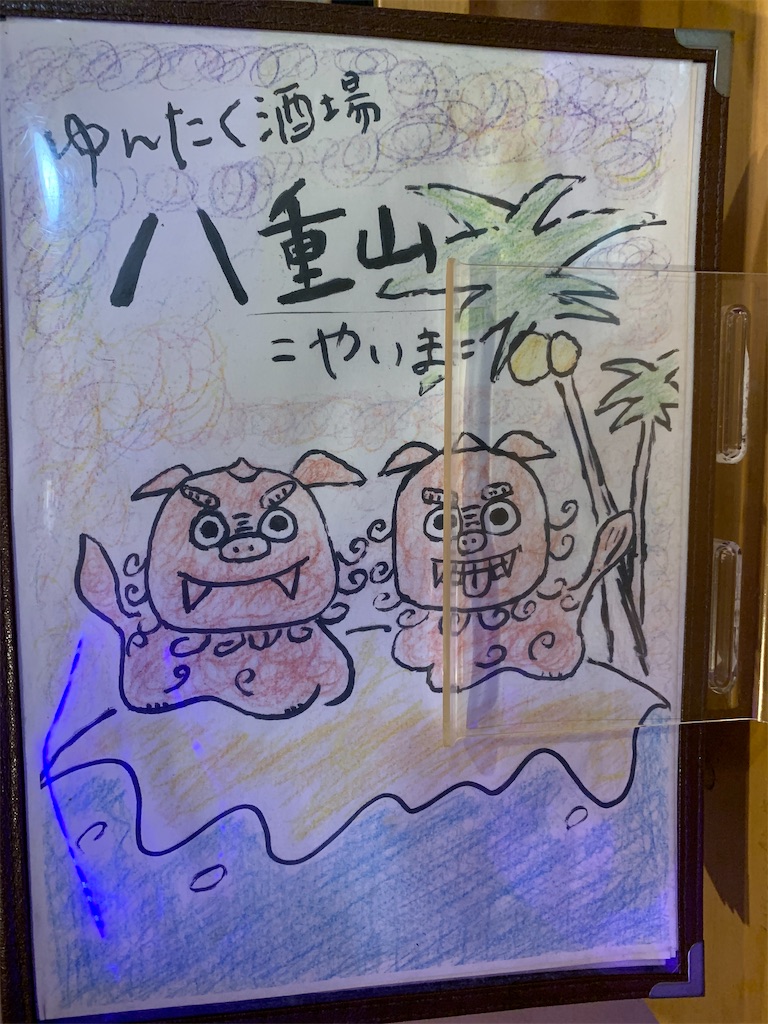 ゆんたく酒場
八重山
=やいま=